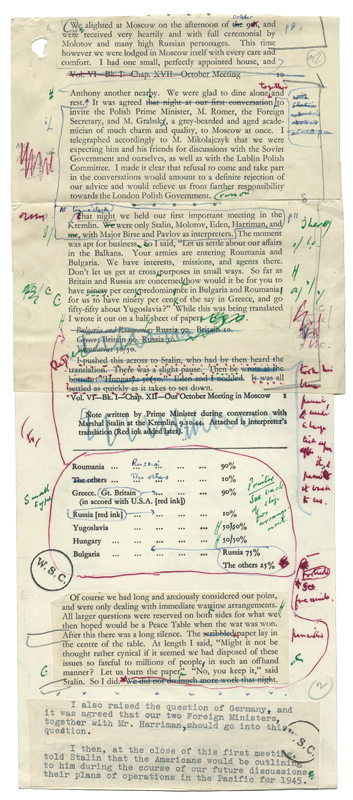 We alighted at Moscow on the afternoon of the 9th, and
were received very heartily and with full ceremonial by
Molotov and many high Russian personages. This time
however we were lodged in Moscow itself with every care and
comfort. I had one small, perfectly appointed house, and
Vol. VI—Bk. I—Chap. XVII—October Meeting 10
together
Anthony another nearby. We were glad to dine alone and
rest. It was agreed that night at our first conversation to
invite the Polish Prime Minister, M. Romer, the Foreign
Secretary, and M. Grabsky, a grey-bearded and aged acade-
mician of much charm and quality, to Moscow at once. I
telegraphed accordingly to M. Mikolajczyk that we were
expecting him and his friends for discussions with the Soviet
Government and ourselves, as well as with the Lublin Polish
Committee. I made it clear that refusal to come and take part
in the conversations would amount to a definite rejection of
our advice and would relieve us from further responsibility
towards the London Polish Government.
That night we held our first important meeting in the
Kremlin. We were only Stalin, Molotov, Eden, Harriman, and
me, with Major Birse and Pavlov as interpreters. The moment
was apt for business, so I said, "Let us settle about our affairs
in the Balkans. Your armies are entering Roumania and
Bulgaria. We have interests, missions, and agents there.
Don't let us get at cross-purposes in small ways. So far as
Britain and Russia are concerned how would it be for you to
have ninety per cent predominance in Bulgaria and Roumania,
for us to have ninety per cent of the say in Greece, and go
fifty-fifty about Yugoslavia?" While this was being translated
I wrote it out on a half-sheet of paper:
Bulgaria and Roumania: Russia 90. Britain 10.
Greece: Britain 90. Russia 10.
Yugoslavia: 50/50.
I pushed this across to Stalin, who had by then heard the
translation. There was a slight pause. Then he wrote at the
bottom: "Hungary: 50/50." Eden and I nodded. It was all
settled as quickly as it takes to set down.
Vol. VI—Bk. I—Chap. XII—Our October Meeting in Moscow 1
Note written by Prime Minister during conversation with
Marshal Stalin at the Kremlin, 9.10.44. Attached is interpreter's
translation (Red ink added later).
Roumania ... Russia ... ... 90%
The others ... The others ... 10%
Greece. Gt. Britain ... ... 90%
(in accord with U.S.A. [red ink])
Russia [red ink] ... ... 10%
Yugoslavia ... ... ... 50/50%
Hungary ... ... ... 50/50%
Bulgaria ... ... ... Russia 75%
The others 25%
Small
type
W.S.C.
Of course we had long and anxiously considered our point,
and were only dealing with immediate wartime arrangements.
All larger questions were reserved on both sides for what we
then hoped would be a Peace Table when the war was won.
After this there was a long silence. The scribbled paper lay in
the centre of the table. At length I said, "Might it not be
thought rather cynical if it seemed we had disposed of these
issues so fateful to millions of people, in such an offhand
manner? Let us burn the paper." "No, you keep it," said
Stalin. So I did. We did not do much more work that night.
pencilled
2
I also raised the question of Germany, and
it was agreed that our two Foreign Ministers,
together with Mr. Harriman, should go into this
question.
I then, at the close of this first meeting
told Stalin that the Americans would be outlining
to him during the course of our future discussions
their plans of operations in the Pacific for 1945.
W.S.C.